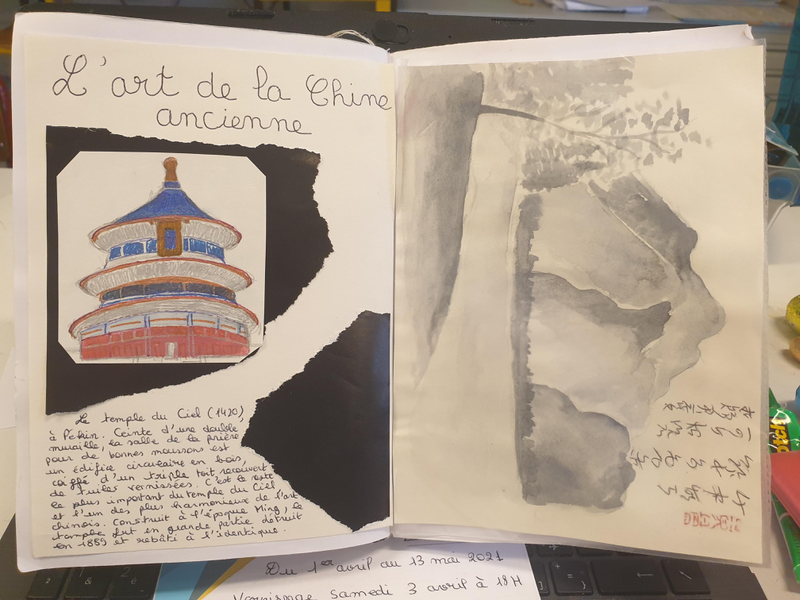 L'art de la Chine
ancienne
Le temple du Ciel (1420)
à Pékin. Ceinte d'une double
muraille, la salle de la prière
pour de bonnes moussons est
un édifice circulaire en bois,
coiffé d'un triple toit recouvert
de tuiles vernissées. C'est le reste
le plus important du temple du Ciel
et l'un des plus harmonieux de l'art
chinois. Construit à l'époque Ming, le
temple fut en grande partie détruit
en 1889 et rebâti à l'identique.
Du 1er avril au 13 mai 2021
Vernissage samedi 3 avril à 18H